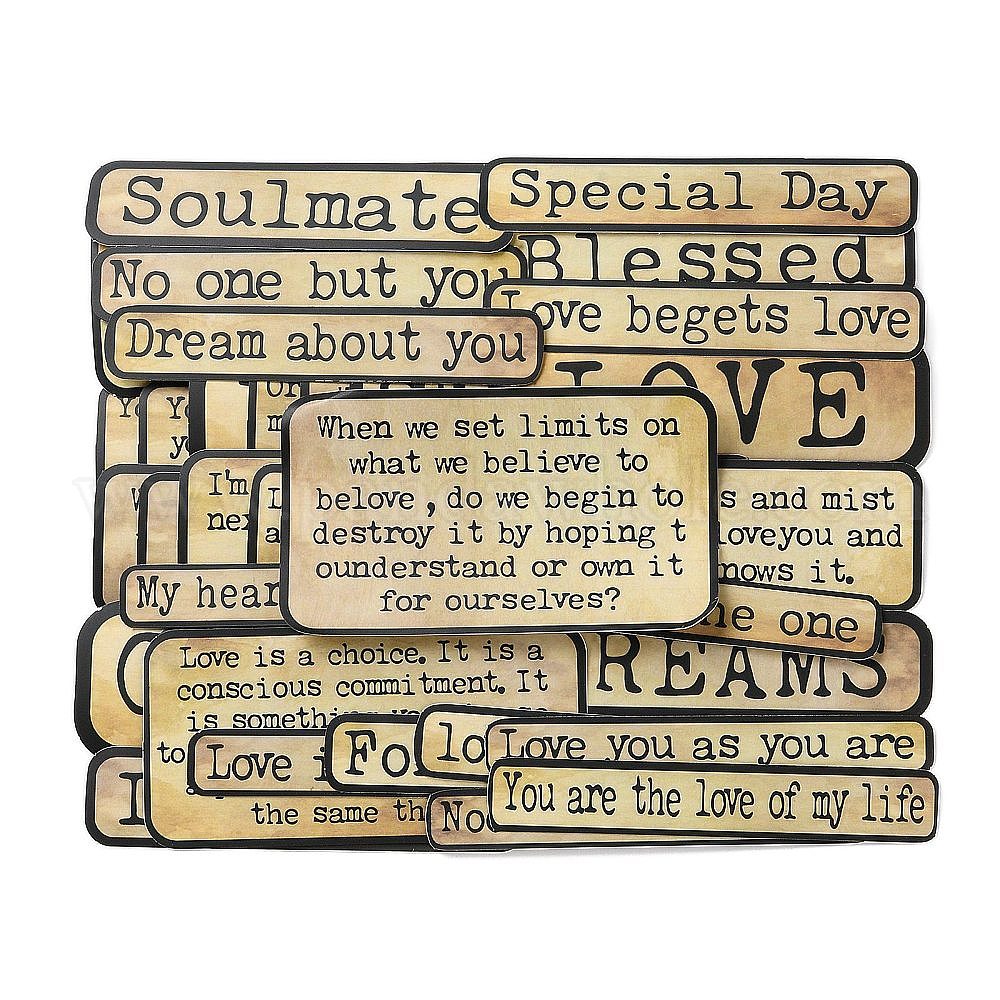 Soulmate
Special Day
No one but you
Blessed
Love begets love
Dream about you
LOVE
When we set limits on
what we believe to
belove, do we begin to
destroy it by hoping t
ounderstand or own it
for ourselves?
I'm
s and mist
loveyou and
nows it.
My hear
he one
REAMS
Love is a choice. It is a
conscious commitment. It
is something
to
the same th
Love i
Fo
lo
Love you as you are
You are the love of my life
No